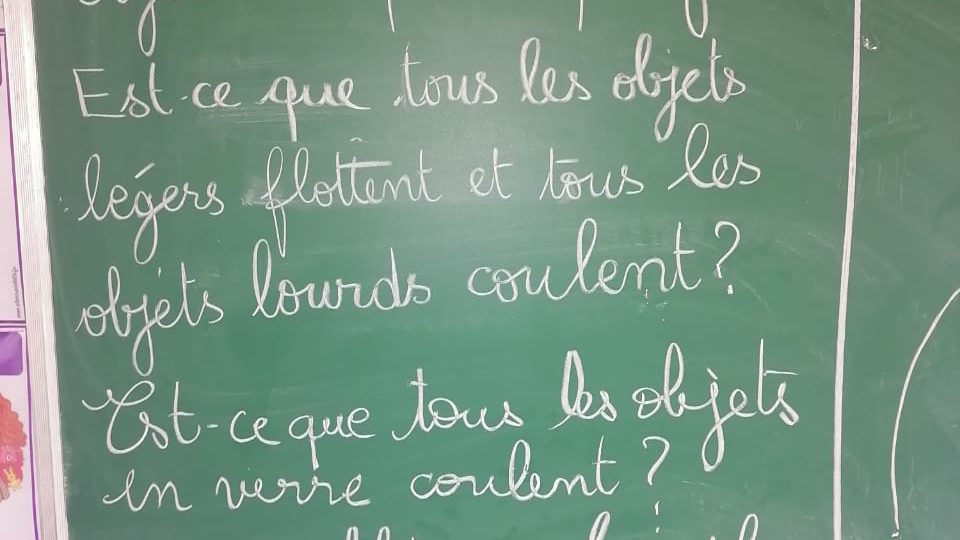 Est-ce que tous les objets
légers flottent et tous les
objets lourds coulent ?
Est-ce que tous les objets
en verre coulent ?